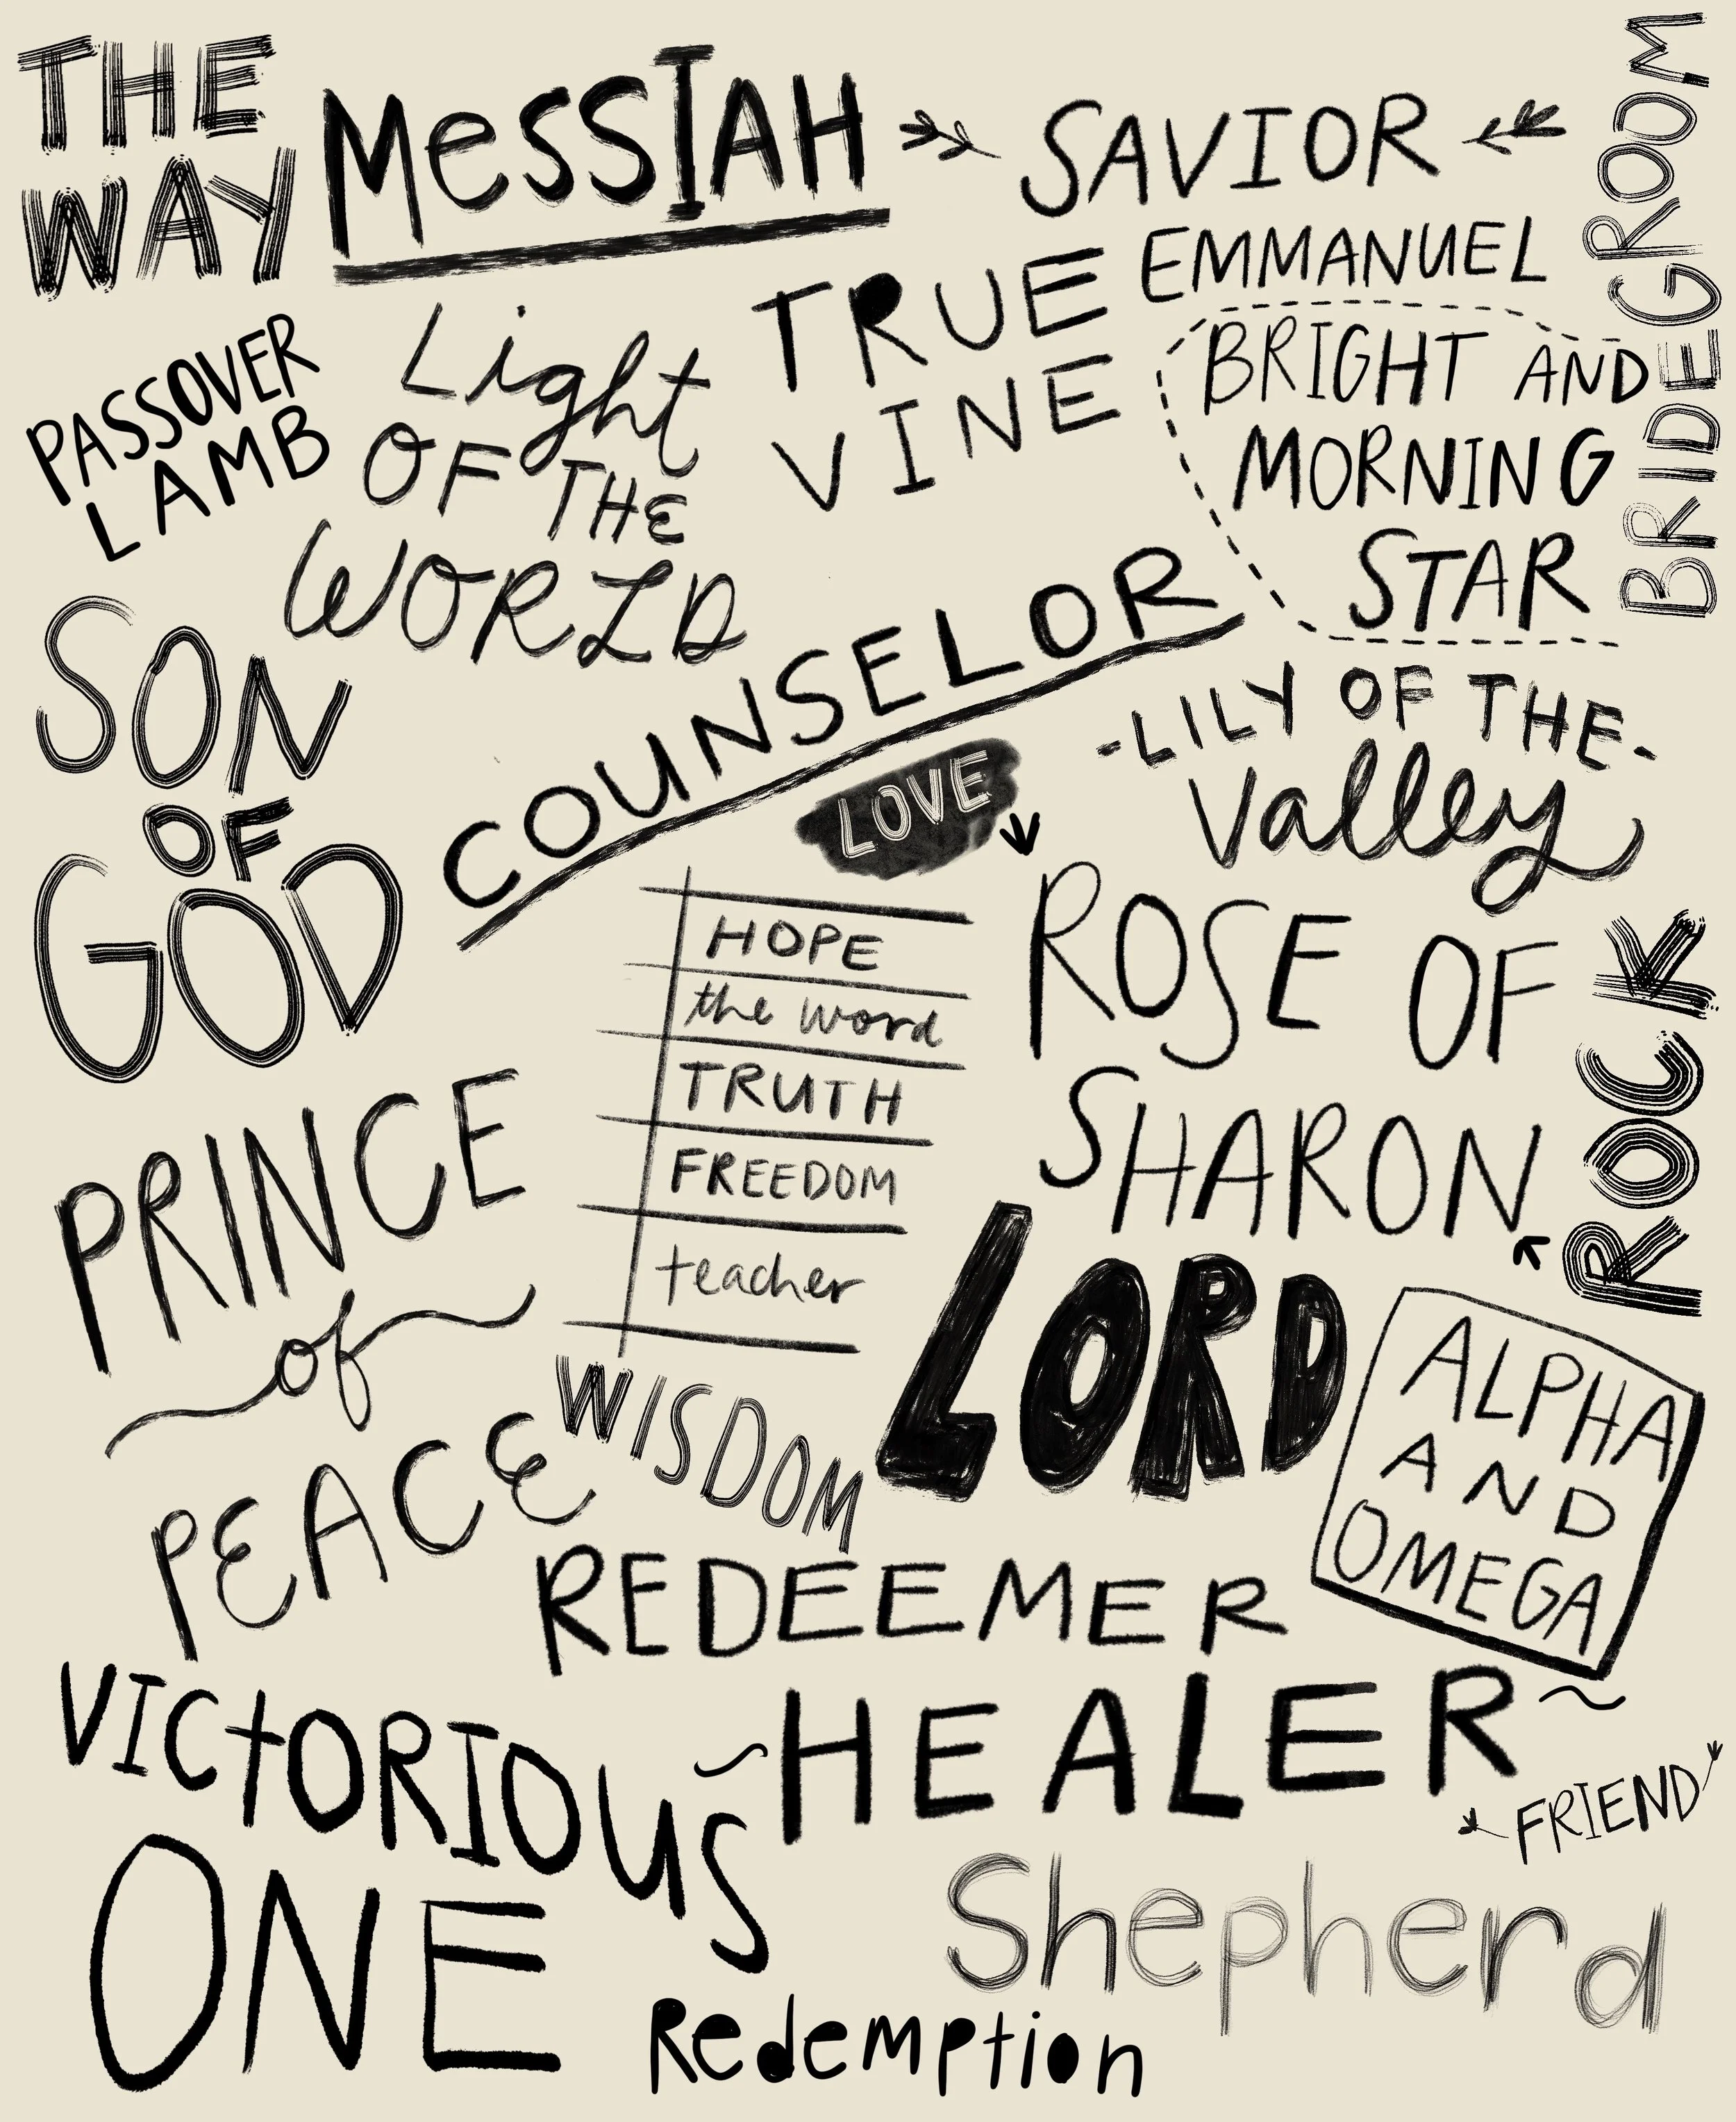 THE
WAY
MeSSIAH
SAVIOR
BRIDEGROOM
EMMANUEL
TRUE
VINE
BRIGHT AND
MORNING
STAR
PASSOVER
LAMB
Light
OF THE
WORLD
COUNSELOR
SON
OF
GOD
LOVE
-LILY OF THE-
Valley
HOPE
the word
TRUTH
FREEDOM
teacher
ROSE OF
SHARON
ROCK
PRINCE
of
PEACE
WISDOM
LORD
ALPHA
AND
OMEGA
REDEEMER
HEALER
VICtORIOUS
ONE
FRIEND
Shepherd
Redemption